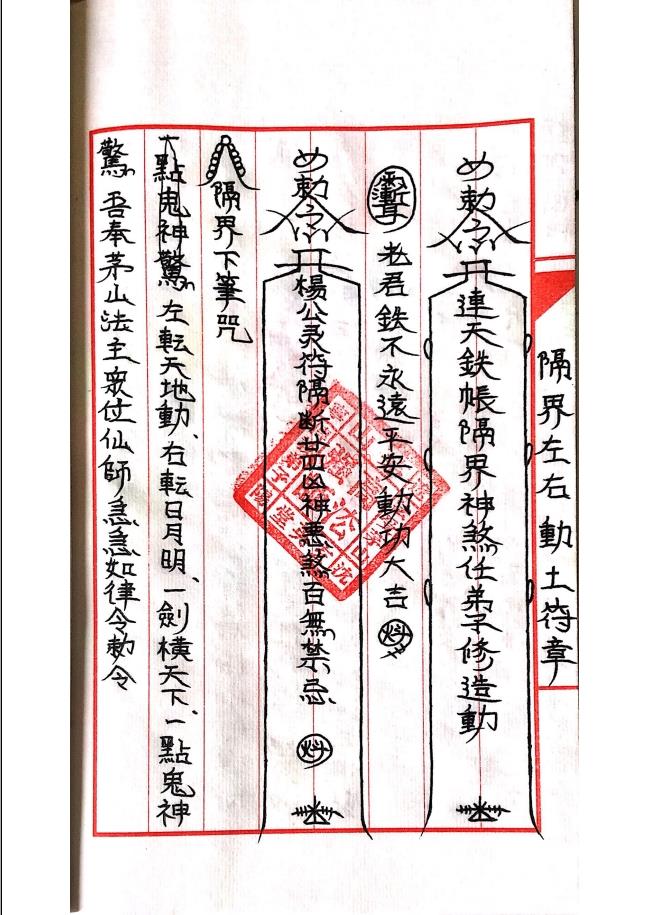 隔界左右動土符章
敕令
連天鉄帳隔界神煞任弟子修造動
老君鉄不永遠平安動功大吉
敕令
楊公灵符隔断廿四凶神悪煞百無禁忌
隔界下筆咒
點鬼神驚左転天地動、右転日月明、一劍橫天下、一點鬼神
驚吾奉茅山法主眾位仙師急急如律令敕令